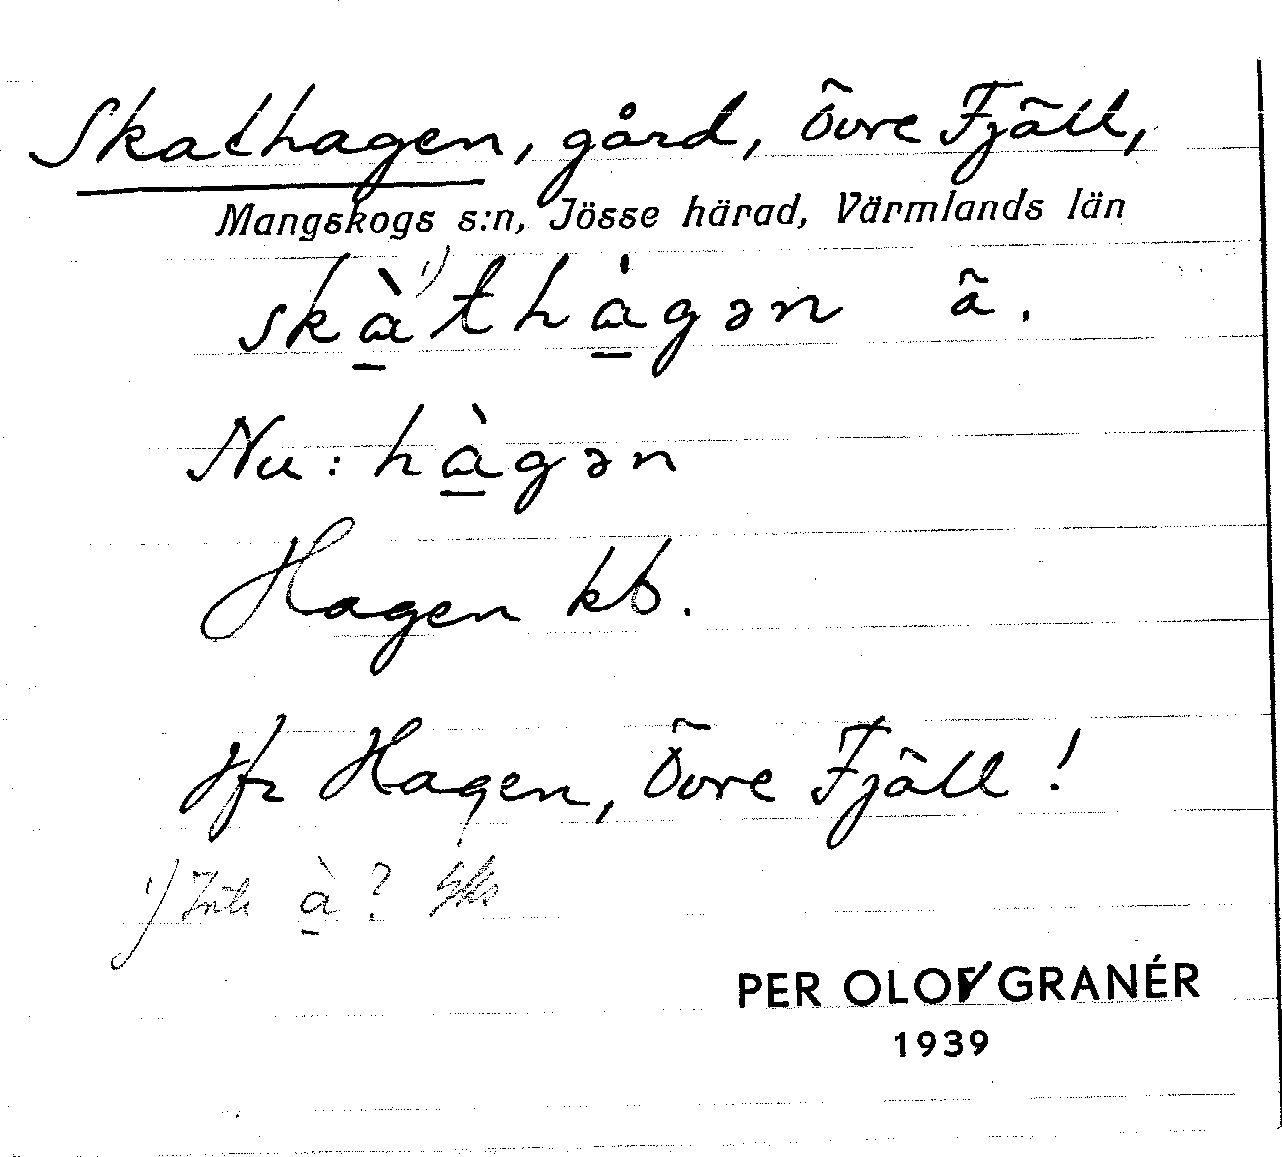 Skathagen, gård, Övre Fjäll,
Mangskogs s:n, Jösse härad, Värmlands län
skàt̶hàgən ä.
Nu: hàgən
Hagen kb.
Jfr Hagen, Övre Fjäll!
¹) Inte à?
PER OLOV GRANÉR
1939